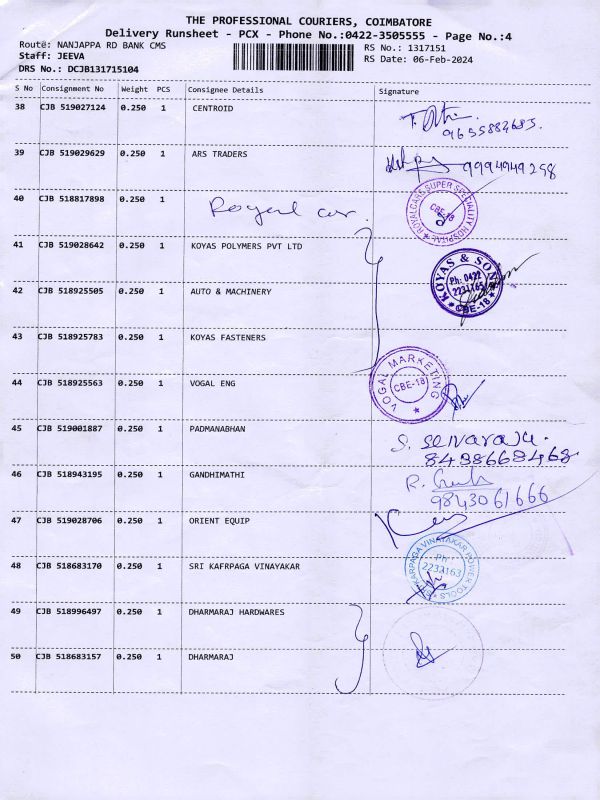 THE PROFESSIONAL COURIERS, COIMBATORE
Delivery Runsheet - PCX - Phone No.:0422-3505555 - Page No.:4
Route: NANJAPPA RD BANK CMS RS No.: 1317151
Staff: JEEVA RS Date: 06-Feb-2024
DRS No.: DCJB131715104
S No Consignment No Weight PCS Consignee Details Signature
38 CJB 519027124 0.250 1 CENTROID
39 CJB 519029629 0.250 1 ARS TRADERS 9994949298
40 CJB 518817898 0.250 1 Royal car. ROYALCARE SUPER SPECIALITY HOSPITAL CBE-18
41 CJB 519028642 0.250 1 KOYAS POLYMERS PVT LTD
KOYAS & SON Ph: 0422 CBE-18
42 CJB 518925505 0.250 1 AUTO & MACHINERY
43 CJB 518925783 0.250 1 KOYAS FASTENERS
44 CJB 518925563 0.250 1 VOGAL ENG VOGAL MARKETING CBE-18
45 CJB 519001887 0.250 1 PADMANABHAN S. Selvaraju.
8438668468
46 CJB 518943195 0.250 1 GANDHIMATHI R.
9843061666
47 CJB 519028706 0.250 1 ORIENT EQUIP
48 CJB 518683170 0.250 1 SRI KAFRPAGA VINAYAKAR KARPAGA VINAYAKAR POWER TOOLS Ph: 2232163
49 CJB 518996497 0.250 1 DHARMARAJ HARDWARES
50 CJB 518683157 0.250 1 DHARMARAJ